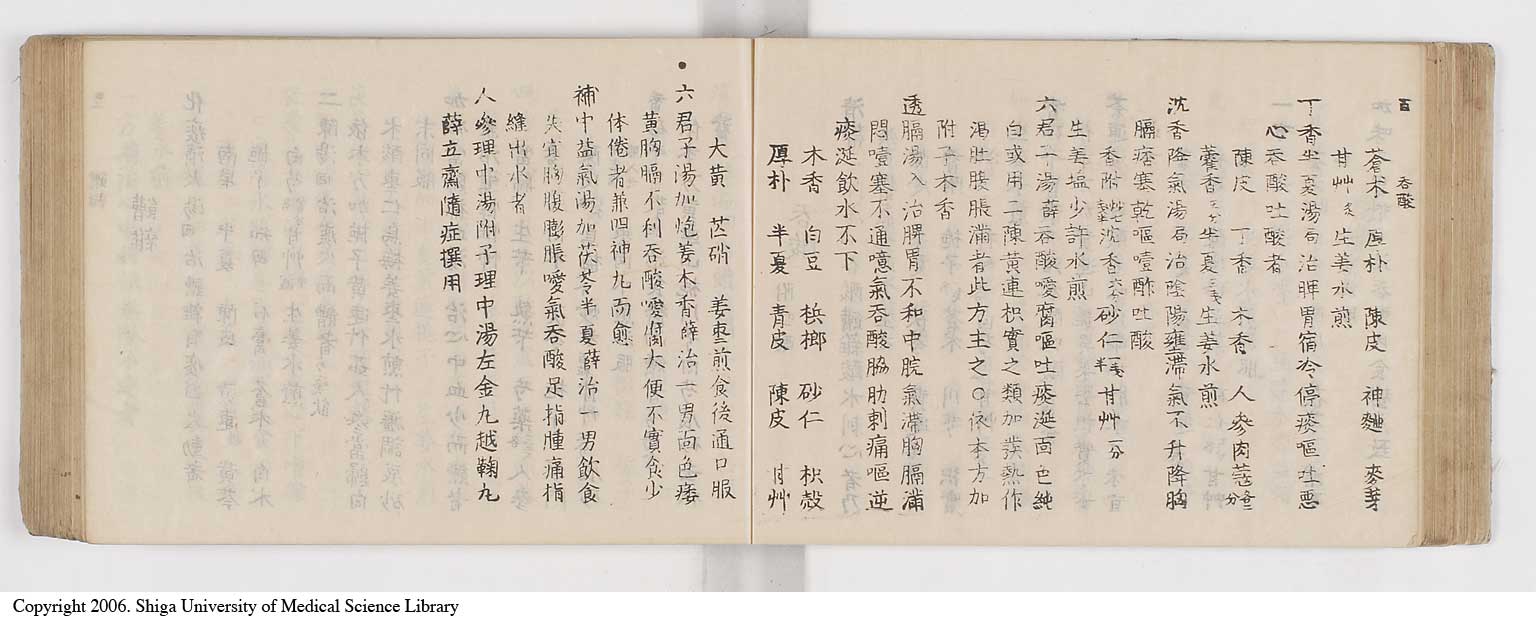 百 呑酸
蒼朮 厚朴 陳皮 神麯 麥芽
甘艸 生姜水煎
丁香半夏湯局治脾胃宿冷停痰嘔吐悪
心呑酸吐酸者
陳皮 丁香 木香 人參肉蔲
藿香 半夏 生姜水煎
沈香降氣湯局治陰陽壅滯氣不升降胸
膈痞塞乾嘔噎酢吐酸
香附 沈香 砂仁 甘艸一分
生姜塩少許水煎
六君子湯薛呑酸噯腐嘔吐痰涎面色純
白或用二陳黄連枳實之類加發熱作
渇肚腹脹滿者此方主之〇依本方加
附子木香
透膈湯入治脾胃不和中脘氣滯胸膈滿
悶噎塞不通噫氣呑酸脇肋刺痛嘔逆
痰涎飲水不下
木香 白豆 梹榔 砂仁 枳殻
厚朴 半夏 青皮 陳皮 甘艸
大黄 芒硝 姜棗煎食後通口服
六君子湯加炮姜木香薛治一男面色痿
黄胸膈不利呑酸噯腐大便不實食少
体倦者兼四神丸而愈
補中益氣湯加茯苓半夏薛治一男飲食
失宜胸腹膨脹噯氣呑酸足指腫痛指
縫出水者
人參理中湯附子理中湯左金丸越鞠丸
薛立齋隨症撰用
Copyright 2006. Shiga University of Medical Science Library